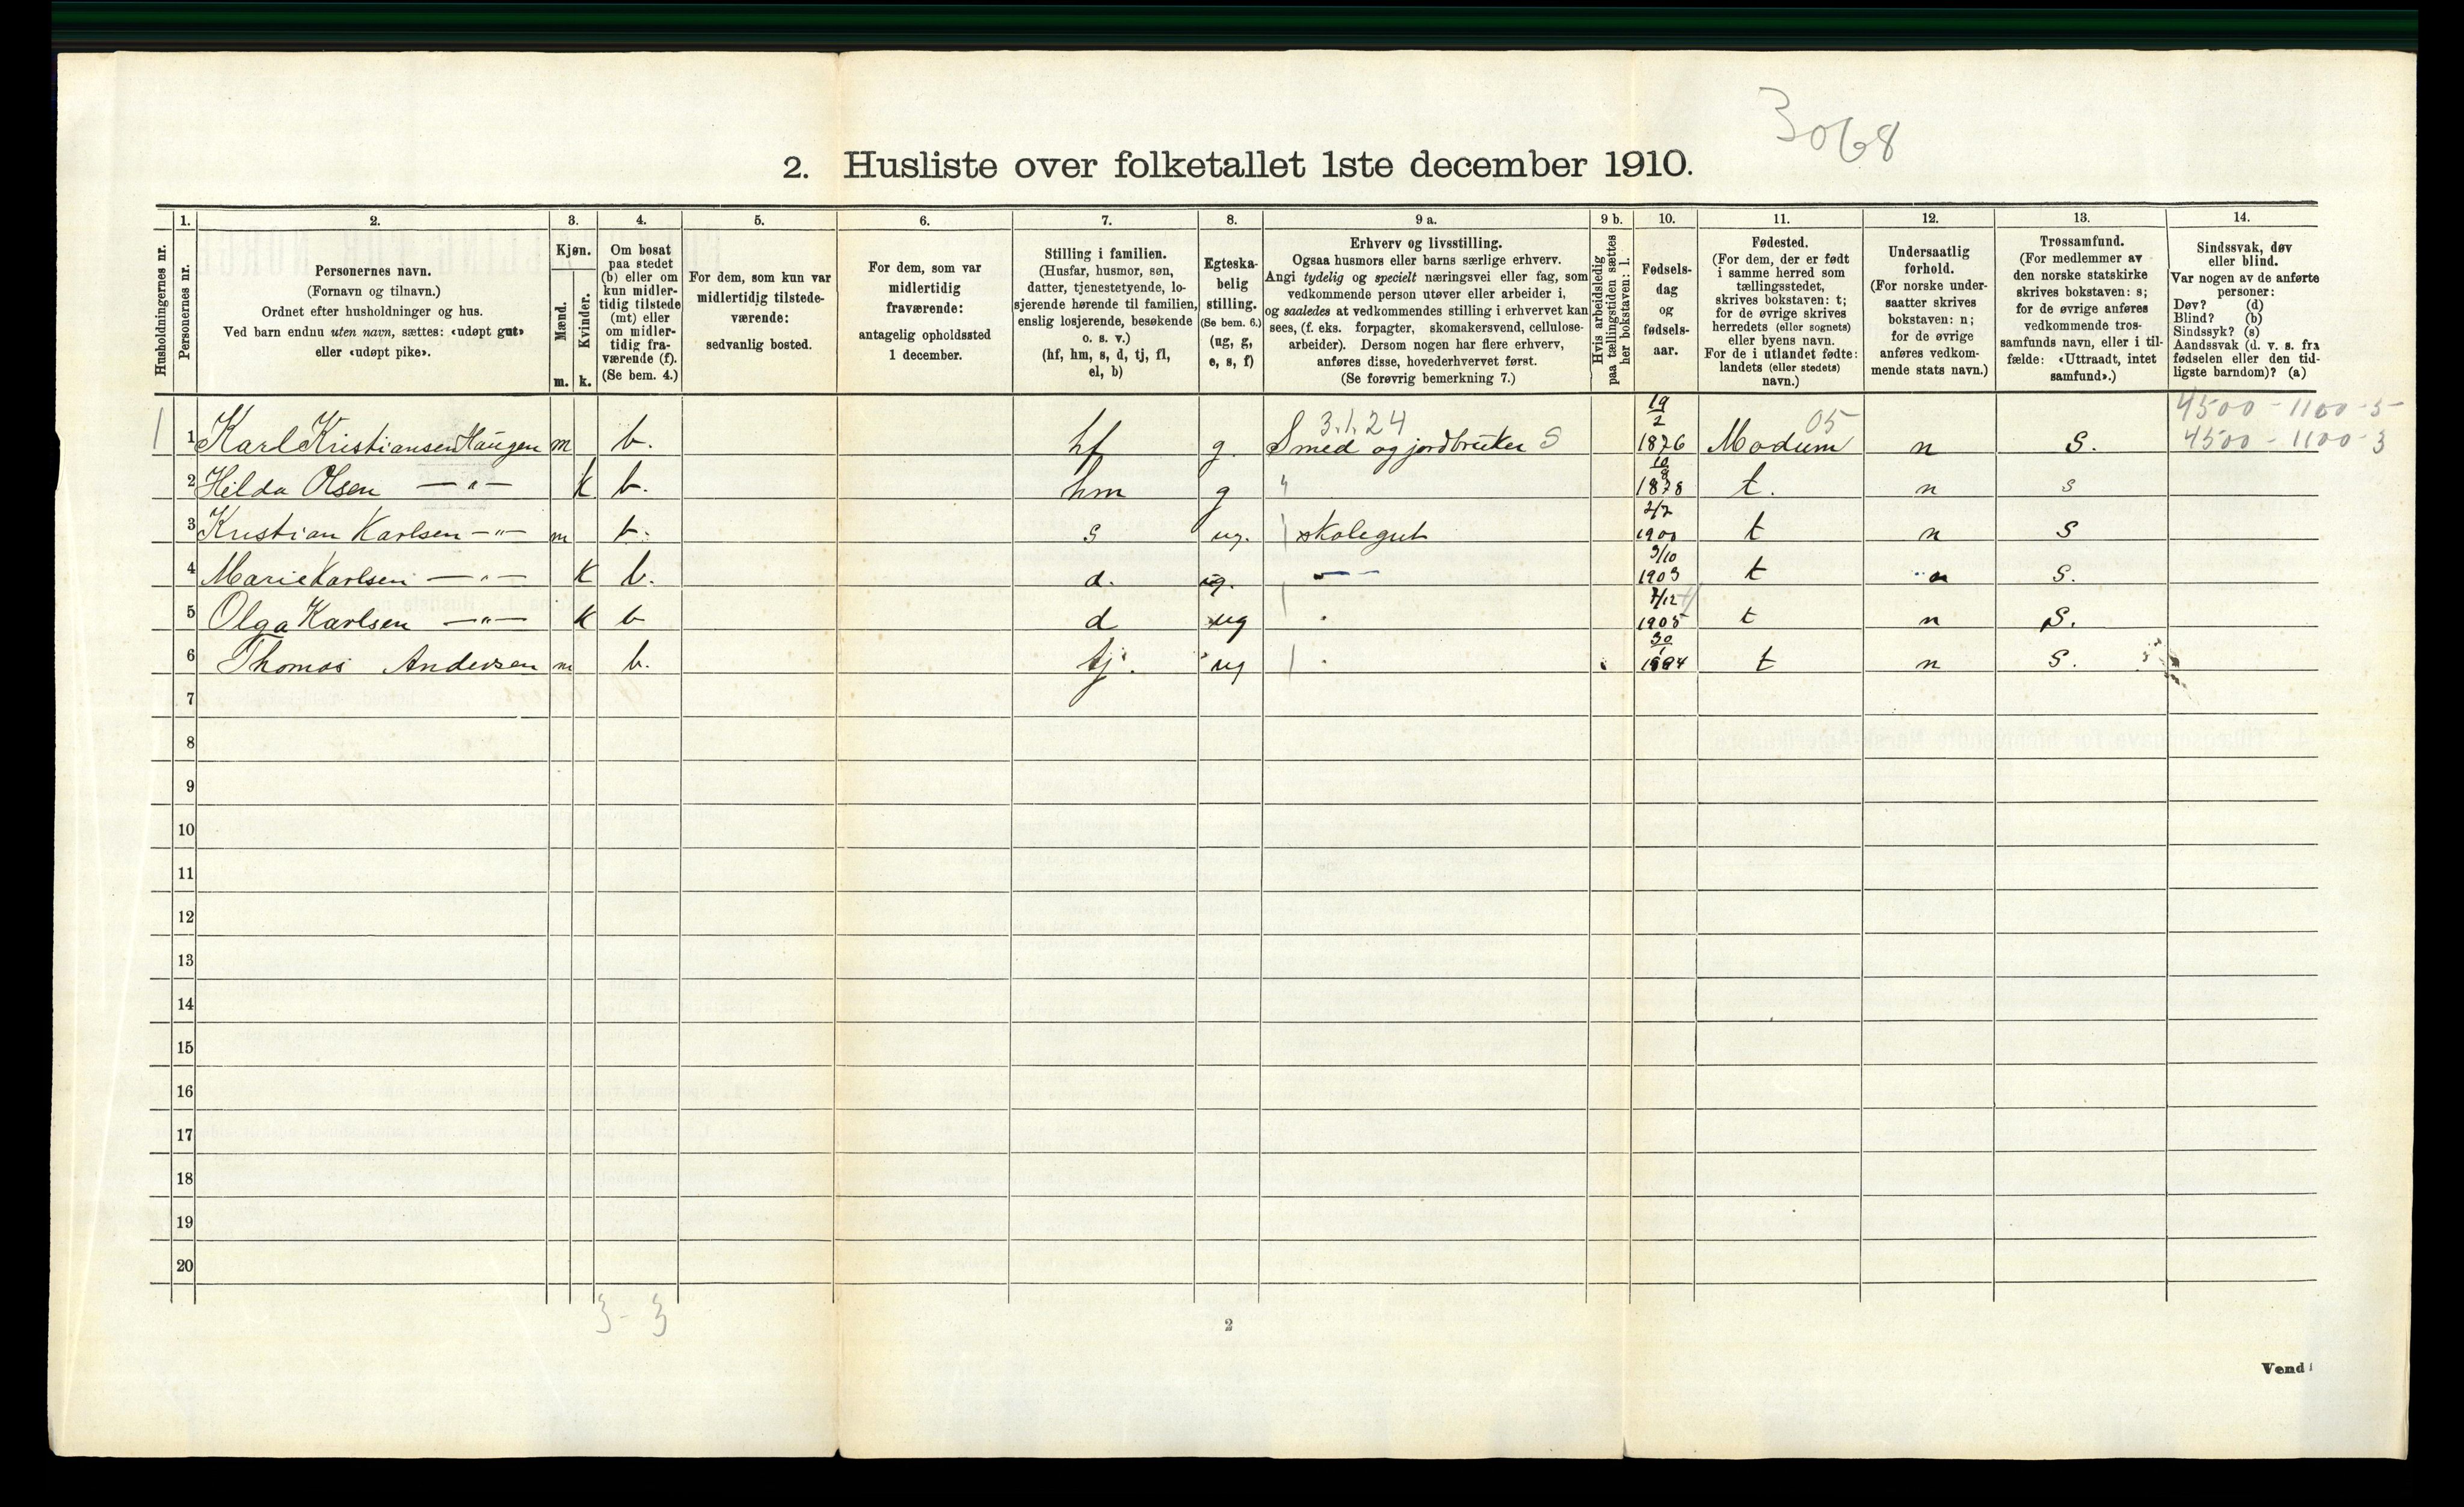 3068
2. Husliste over folketallet 1ste december 1910.
Husholdningernes nr.
1. Personernes nr.
2. Personernes navn. (Fornavn og tilnavn.) Ordnet efter husholdninger og hus. Ved barn endnu uten navn, sættes: «udøpt gut» eller «udøpt pike».
3. Kjøn. Mænd. m. Kvinder. k.
4. Om bosat paa stedet (b) eller om kun midlertidig tilstede (mt) eller om midlertidig fraværende (f). (Se bem. 4.)
5. For dem, som kun var midlertidig tilstedeværende: sedvanlig bosted.
6. For dem, som var midlertidig fraværende: antagelig opholdssted 1 december.
7. Stilling i familien. (Husfar, husmor, søn, datter, tjenestetyende, losjerende hørende til familien, enslig losjerende, besøkende o. s. v.) (hf, hm, s, d, tj, fl, el, b)
8. Egteskabelig stilling. (Se bem. 6.) (ug, g, e, s, f)
9 a. Erhverv og livsstilling. Ogsaa husmors eller barns særlige erhverv. Angi tydelig og specielt næringsvei eller fag, som vedkommende person utøver eller arbeider i, og saaledes at vedkommendes stilling i erhvervet kan sees, (f. eks. forpagter, skomakersvend, cellulosearbeider). Dersom nogen har flere erhverv, anføres disse, hovederhvervet først. (Se forøvrig bemerkning 7.)
9 b. Hvis arbeidsledig paa tællingstiden sættes her bokstaven: l.
10. Fødselsdag og fødselsaar.
11. Fødested. (For dem, der er født i samme herred som tællingsstedet, skrives bokstaven: t; for de øvrige skrives herredets (eller sognets) eller byens navn. For de i utlandet fødte: landets (eller stedets) navn.)
12. Undersaatlig forhold. (For norske undersaatter skrives bokstaven: n; for de øvrige anføres vedkommende stats navn.)
13. Trossamfund. (For medlemmer av den norske statskirke skrives bokstaven: s; for de øvrige anføres vedkommende trossamfunds navn, eller i tilfælde: «Uttraadt, intet samfund».)
14. Sindssvak, døv eller blind. Var nogen av de anførte personer: Døv? (d) Blind? (b) Sindssyk? (s) Aandssvak (d. v. s. fra fødselen eller den tidligste barndom)? (a)
3.1.24 05 4500-1100-5
1 1 Karl Kristiansen Haugen m b. hf g. Smed og jordbruker S 19/2 1876 Modum n S. 4500-1100-3
2 Hilda Olsen —"— k b. hm g " 10/8 1878 t. n s
3 Kristian Karlsen —"— m b. s ug. skolegut 2/7 1900 t n S
4 Marie Karlsen —"— k b. d. ug. — 9/10 1903 t n S.
5 Olga Karlsen —"— k b d ug 7/12 1905 t n S.
6 Thomas Andersen m b. tj. ug 30/1 1894 t n S.
7
8
9
10
11
12
13
14
15
16
17
18
19
20
3-3
2
Vend!